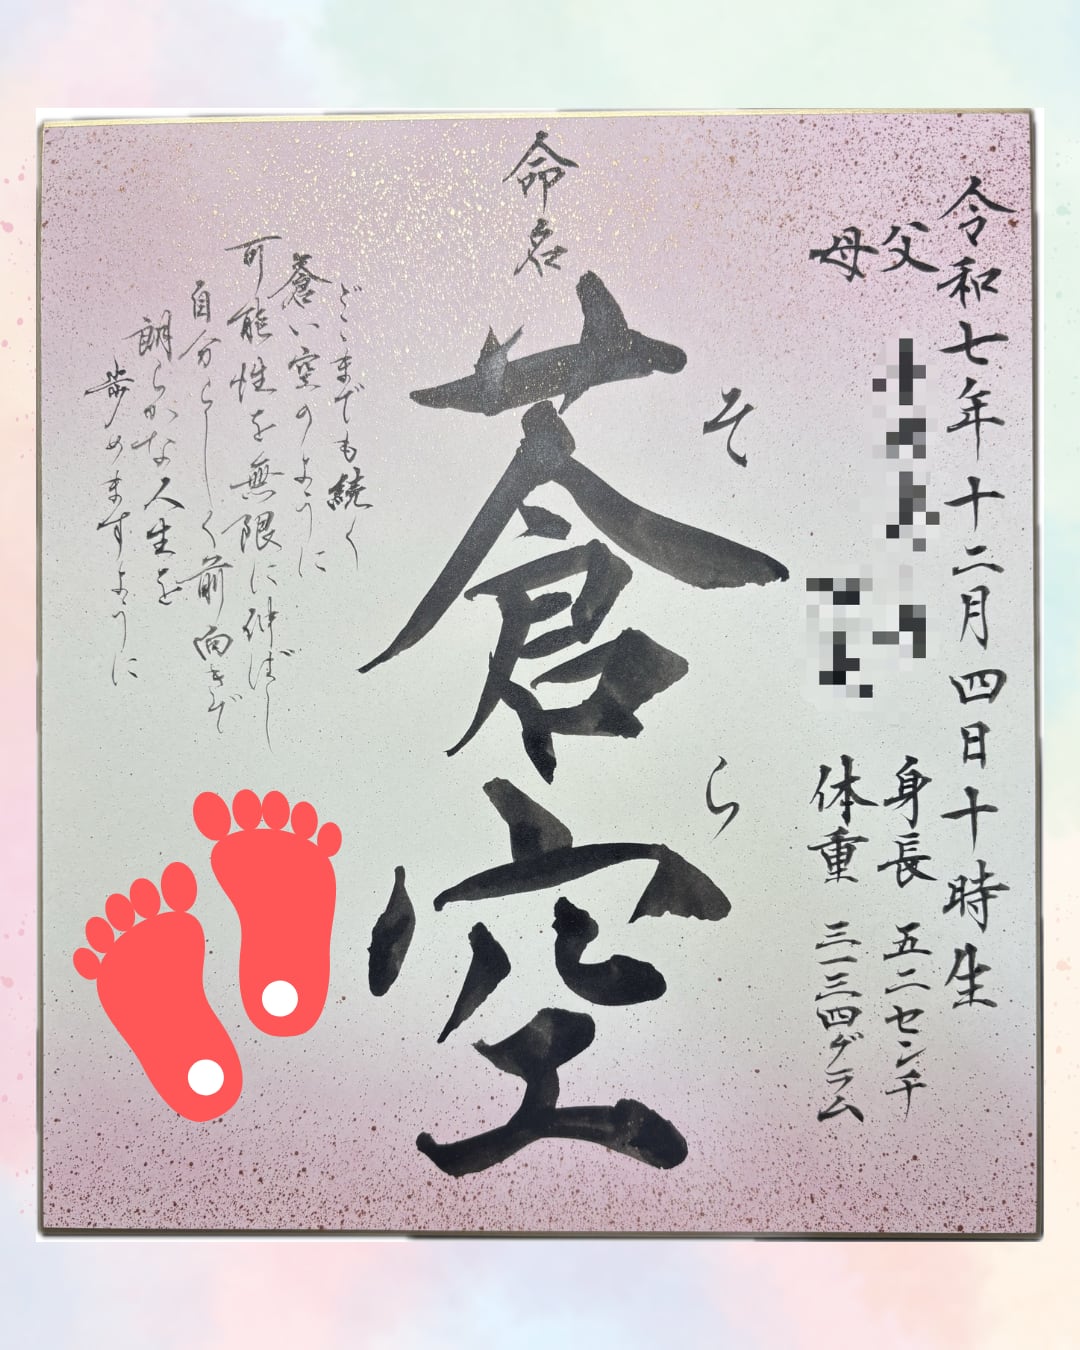 令和七年十二月四日十時生
父
母
身長 五二センチ
体重 三一三四グラム
命名
蒼空
そら
どこまでも続く
蒼い空のように
可能性を無限に伸ばし
自分らしく前向きで
朗らかな人生を
歩めますように